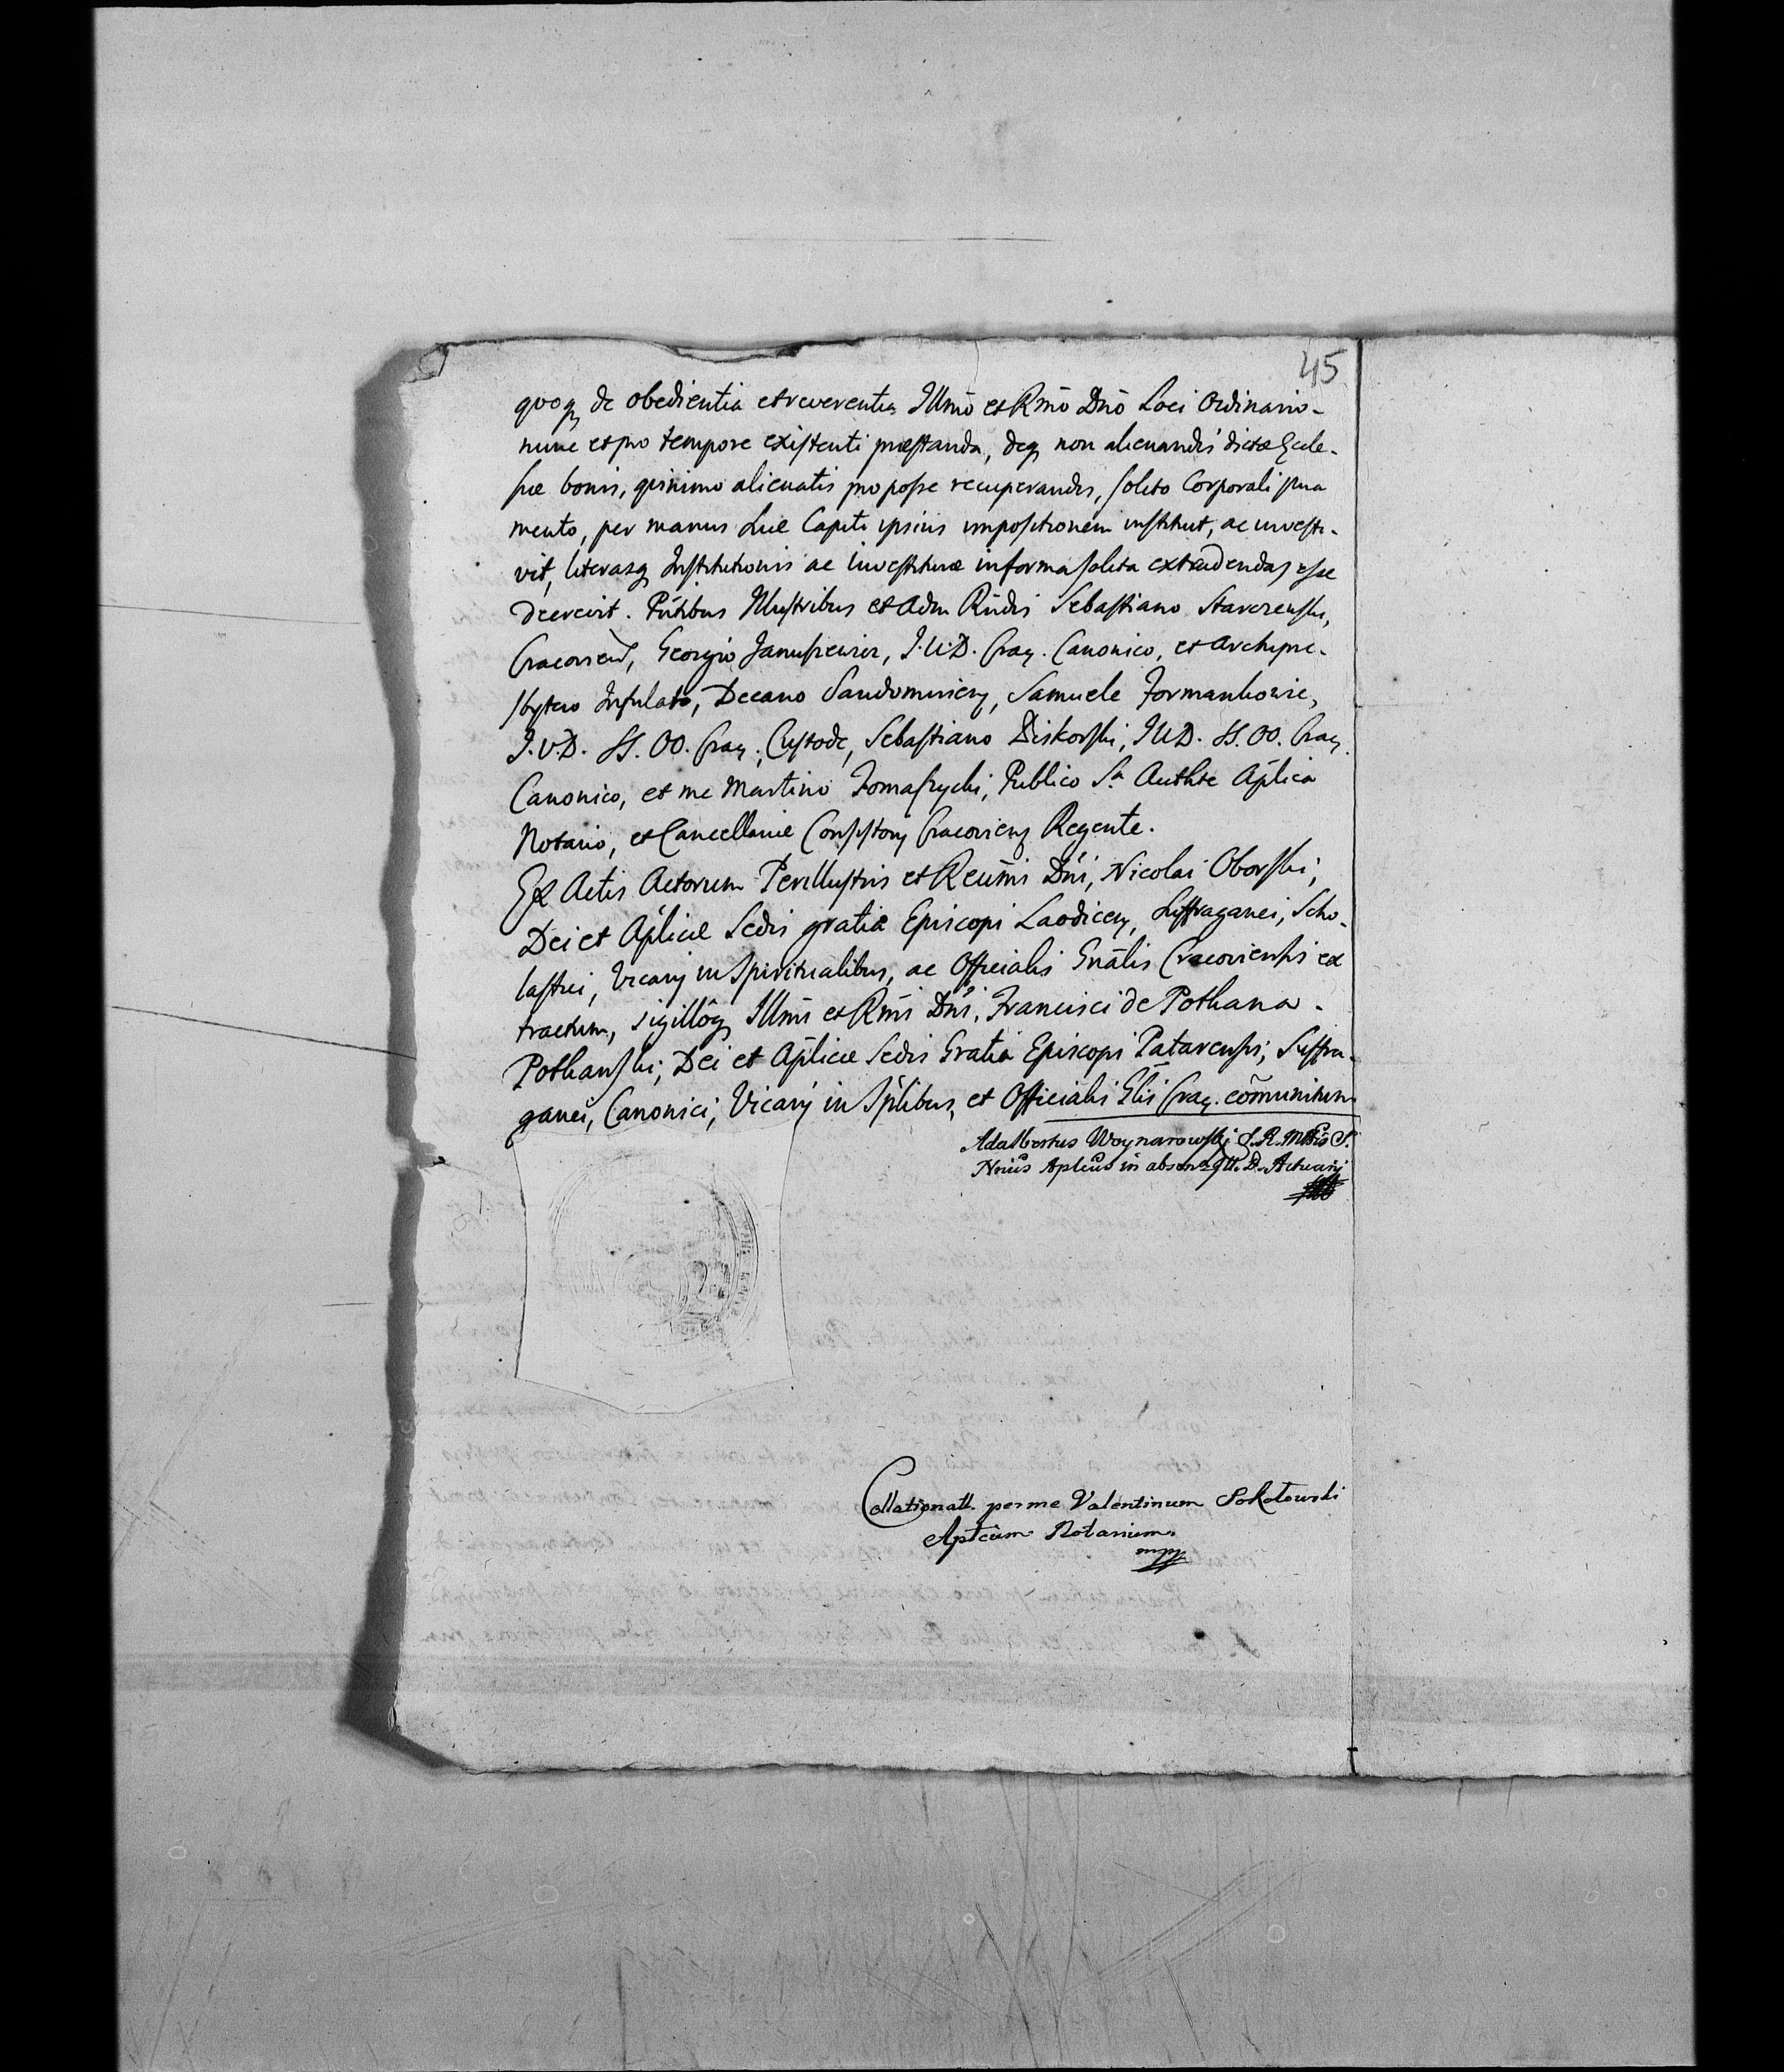 45
quoq, de obedientia et reverentia Illmo et Rmo Dno Loci Ordinario-
nunc et pro tempore existenti præstanda, deq, non alienandis dictæ Eccle-
siæ bonis, quinimo alienatis pro posse recuperandis, solito Corporali iura
mento, per manus suæ Capiti ipsius impositionem instituit, ac investi-
vit, literasq, Institutionis ac investituræ in forma solita extradendas esse
decrevit. Pntibus Illustribus et Adm Rndis Sebastiano Starczewski,
Cracovien, Georgio Januszewicz, I.U.D. Crac. Canonico, et Archipre-
sbytero Infulato, Decano Sandomirien, Samuele Formankowic,
I.U.D. SS. OO. Crac. Custode, Sebastiano Diskorski, IUD. SS. OO. Crac.
Canonico, et me Martino Tomaszycki, Publico Sa Authte Aplica
Notario, et Cancellariæ Consistory Cracovien Regente.
Ex Actis Actorum Perillustris et Reumi Dni, Nicolai Oborski,
Dei et Aplicæ Sedis gratia Episcopi Laodicen, Suffraganei, Scho-
lastici, Vicarij in Spiritualibus, ac Officialis Gnalis Cracoviensis ex
tractum, sigilloq, Illmi et Rmi Dni, Francisci de Potkana-
Potkanski, Dei et Aplicæ Sedis Gratia Episcopi Patarensis, Suffra-
ganei, Canonici, Vicarij in Splibus, et Officialis Glis Crac. comunitum
Adalbertus Woynarowski S. R. Mttis S.
Nrius Aplcus in absen D. Actuarij
Collationatt. per me Valentinum Sokołowski
Aptcum Notarium.
mpp